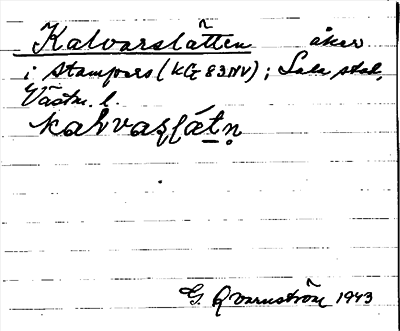 Kalvarslätten åker
i Stampers (KG 83NV); Sala stad,
Västm. l.
kalvaṣlætṇ
G. Qvarnström 1943